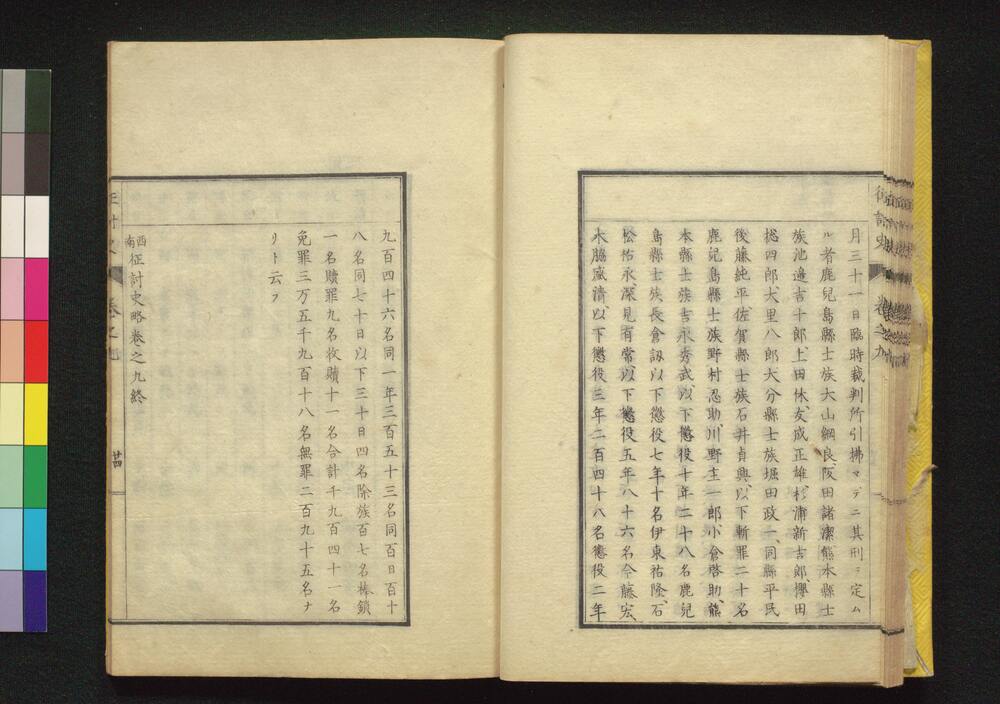 月三十一日臨時裁判所引拂マデニ其刑ヲ定ム
ル者鹿兒島縣士族大山綱良、阪田諸潔、熊本縣士
族池邉吉十郎、上田休、友成正雄、杉浦新吉郎、櫻田
惣四郎、大里八郎、大分縣士族堀田政一、同縣平民
後藤純平、佐賀縣士族石井貞興、以下斬罪二十名
鹿兒島縣士族野村忍助、川野主一郎、小倉啓助、熊
本縣士族吉永秀武、以下懲役十年二十八名鹿兒
島縣士族長倉訒以下懲役七年十名伊東祐隆、石
松怡永、深見有常、以下懲役五年八十六名今藤宏、
木脇盛清以下懲役三年二百四十八名懲役二年
九百四十六名同一年三百五十三名同百日百十
八名同七十日以下三十日四名除族百七名棒鎖
一名贖罪九名收贖十一名合計千九百四十一名
免罪三万五千九百十八名無罪二百九十五名ナ
リト云フ
西南征討史略卷之九終
卷之九
廿四
征討史
卷之九